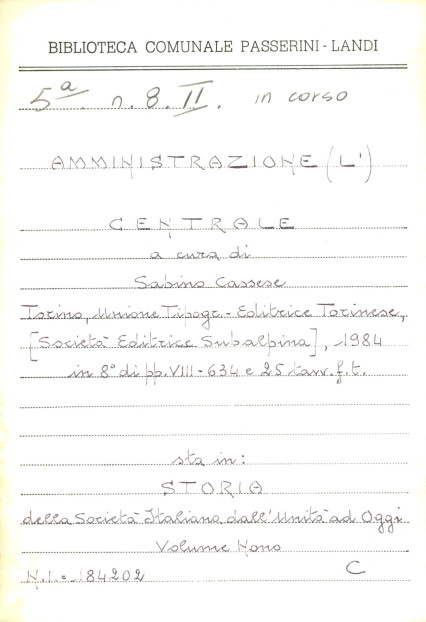 BIBLIOTECA COMUNALE PASSERINI - LANDI
5ª. n. 8. II. in corso
AMMINISTRAZIONE (L')
CENTRALE
a cura di
Sabino Cassese
Torino, Unione Tipogr. - Editrice Torinese,
[Società Editrice Subalpina], 1984
in 8° di pp. VIII - 634 e 25 tavv. f. t.
sta in:
STORIA
della Società Italiana dall'Unità ad Oggi
Volume Nono
N.I. = 184202 C